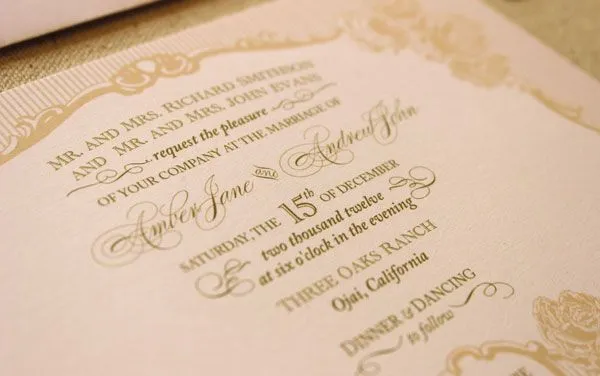 MR. AND MRS. RICHARD SMITHSON
AND MR. AND MRS. JOHN EVANS
request the pleasure
OF YOUR COMPANY AT THE MARRIAGE OF
Amber Jane and Andrew John
SATURDAY, THE 15th OF DECEMBER
two thousand twelve
at six o'clock in the evening
THREE OAKS RANCH
Ojai, California
DINNER & DANCING
to follow